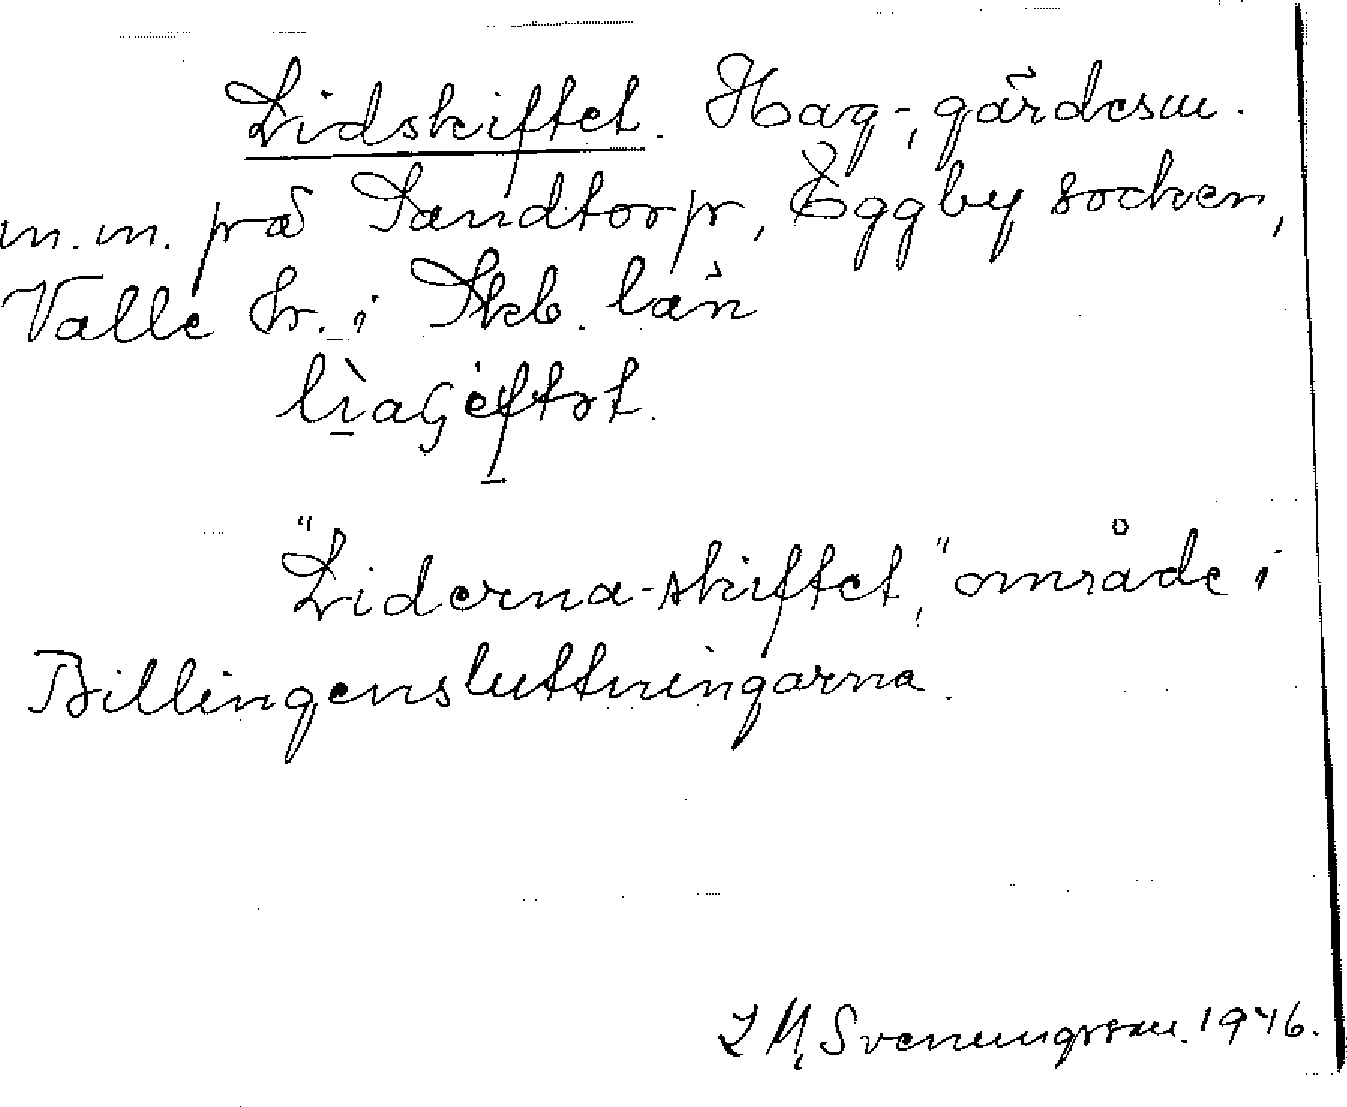 Lidskiftet. Hag-, gärdesm.
m.m. på Sandtorp, Eggby socken,
Valle hr. i Skb. län
"Liderna-skiftet," område i
Billingensluttningarna.
Svenungsson. 1946.